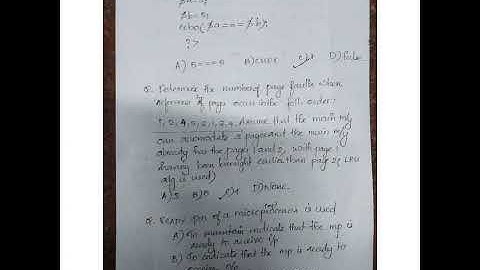 $b=5;
echo($a===$b);
?>
A) 5===5 B) error C) 1 D) False
Q. Determine the number of page faults when
reference of page occur in the foll. order:
1, 2, 4, 5, 2, 1, 2, 4. Assume that the main m/y
can accomodate 3 pages and the main m/y
already has the pages 1 and 2, with page 1
having been brought earlier than page 2 (LRU
alg is used)
A) 5 B) 6 C) 4 D) None.
Q. READY pin of a microprocessor is used
A) To indicate that the mp is
ready to receive i/p
B) To indicate that the mp is ready to